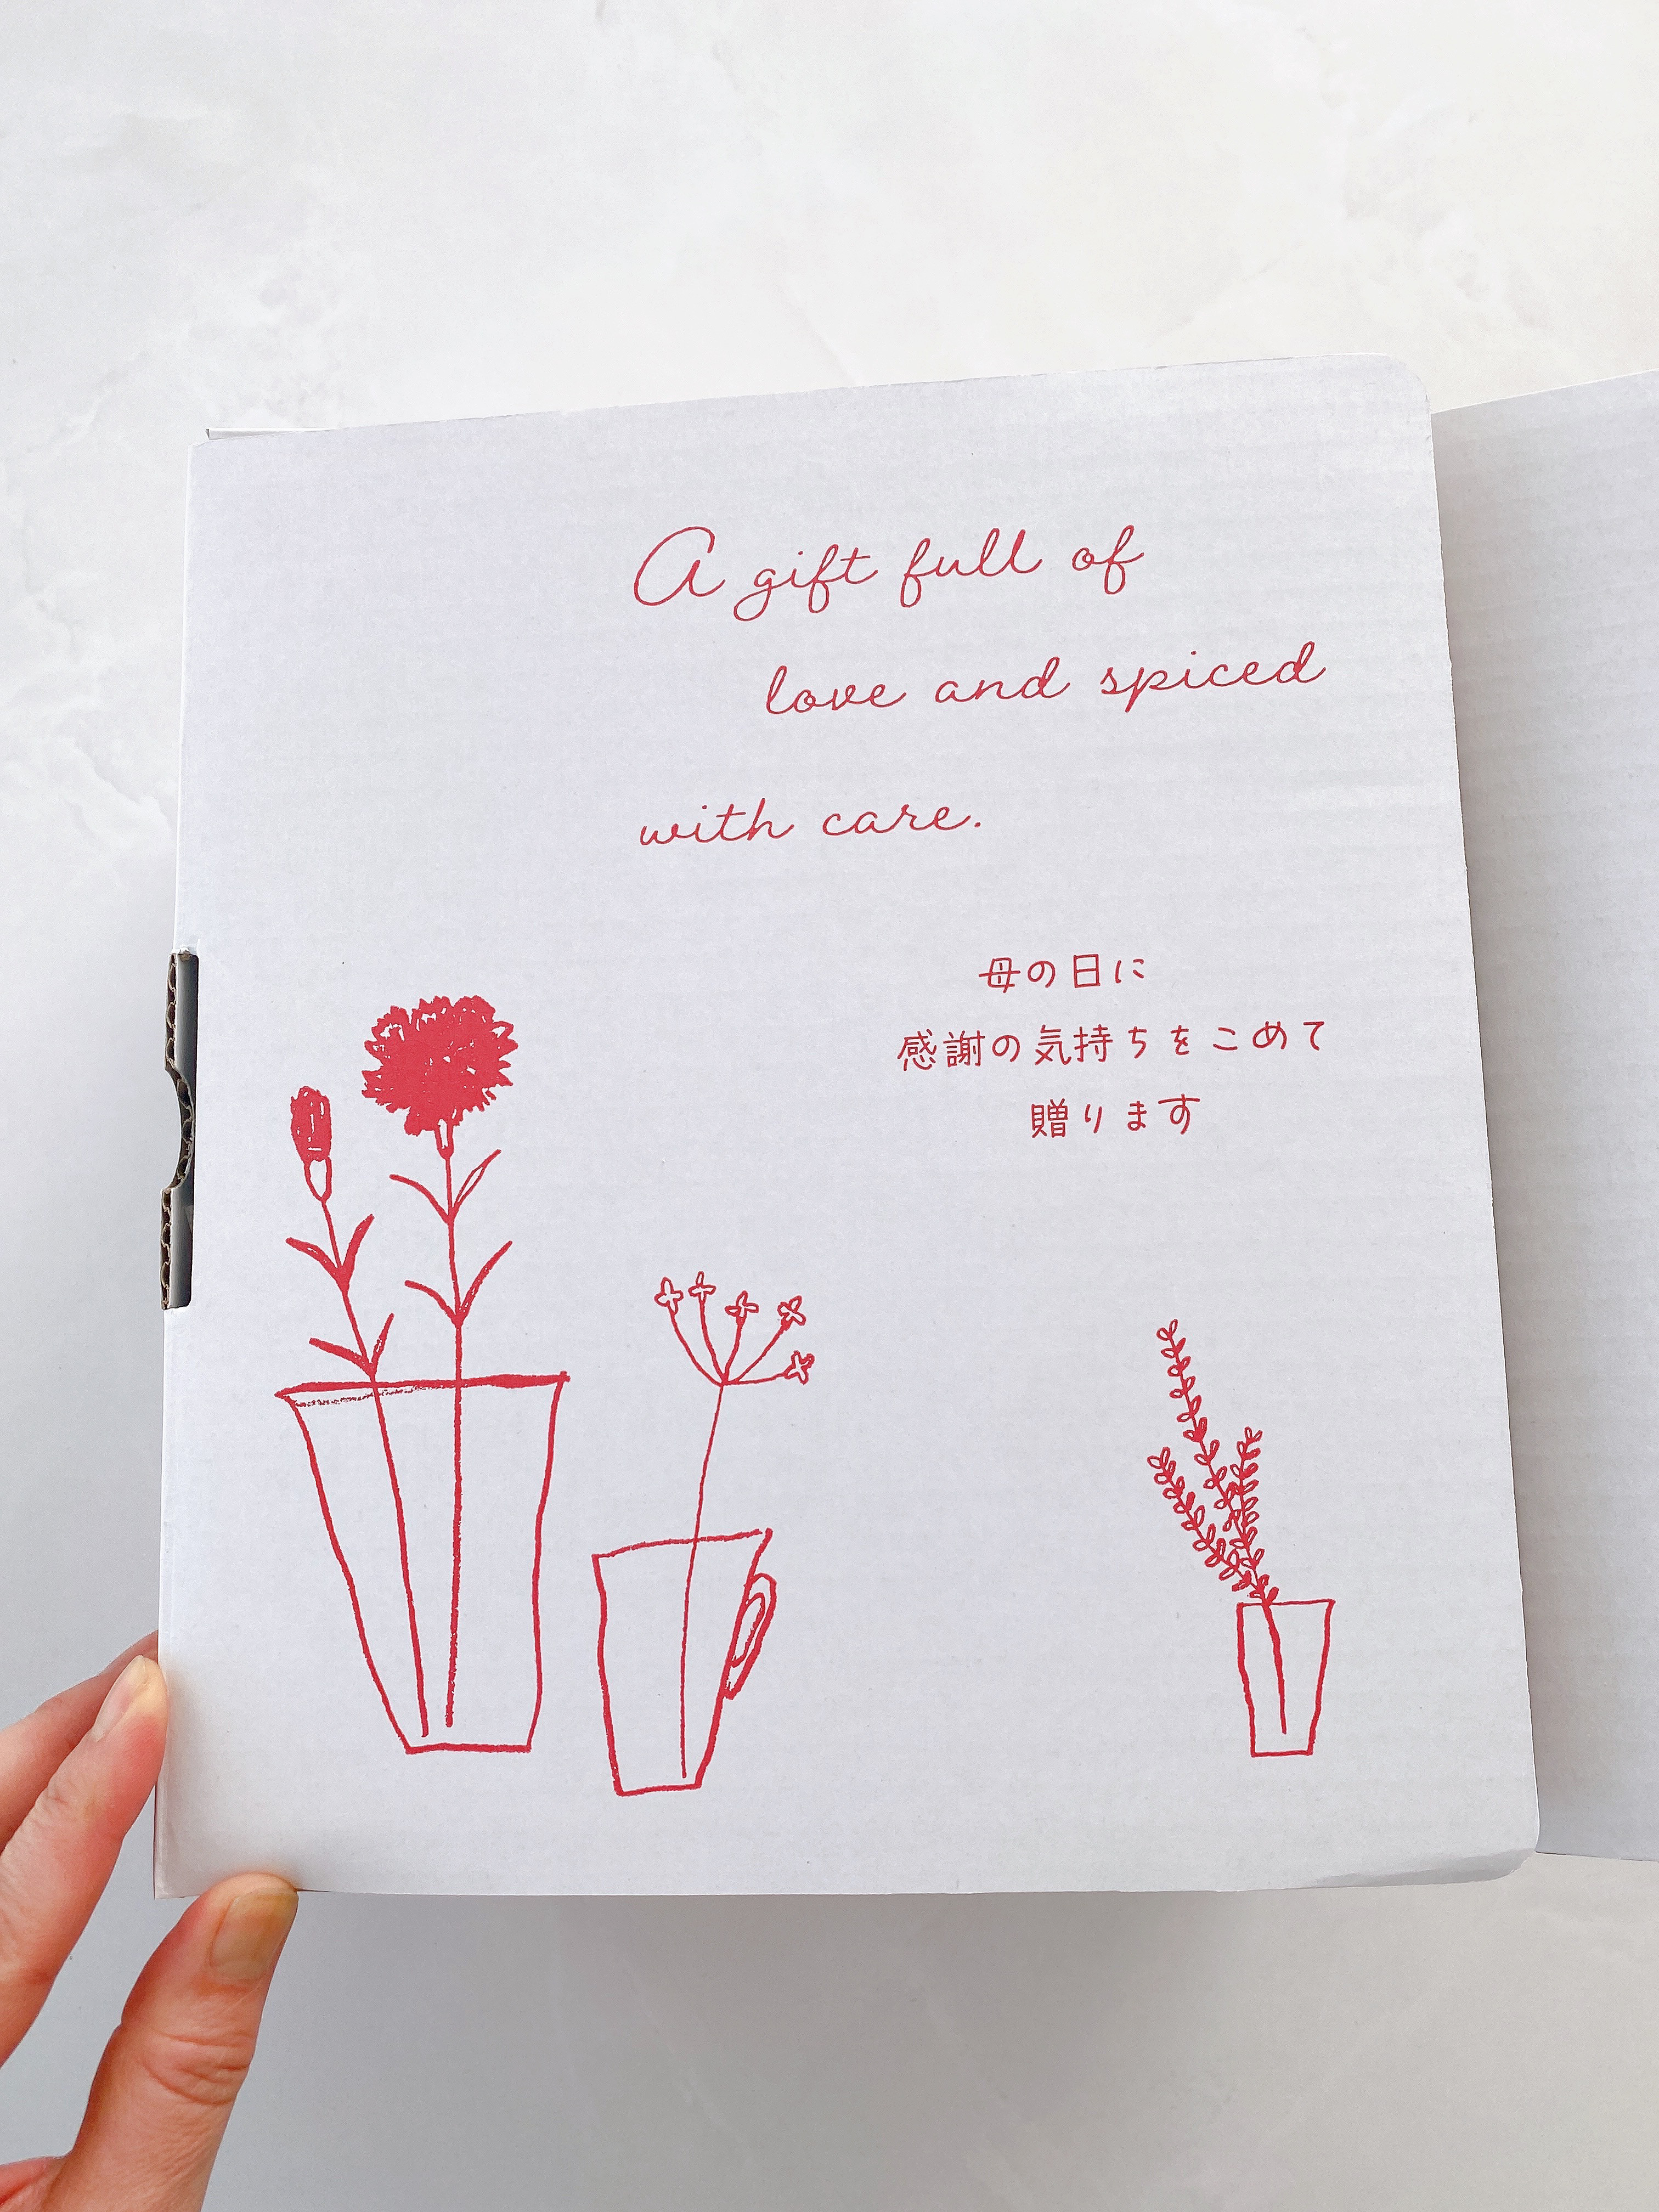 A gift full of
love and spiced
with care.
母の日に
感謝の気持ちをこめて
贈ります